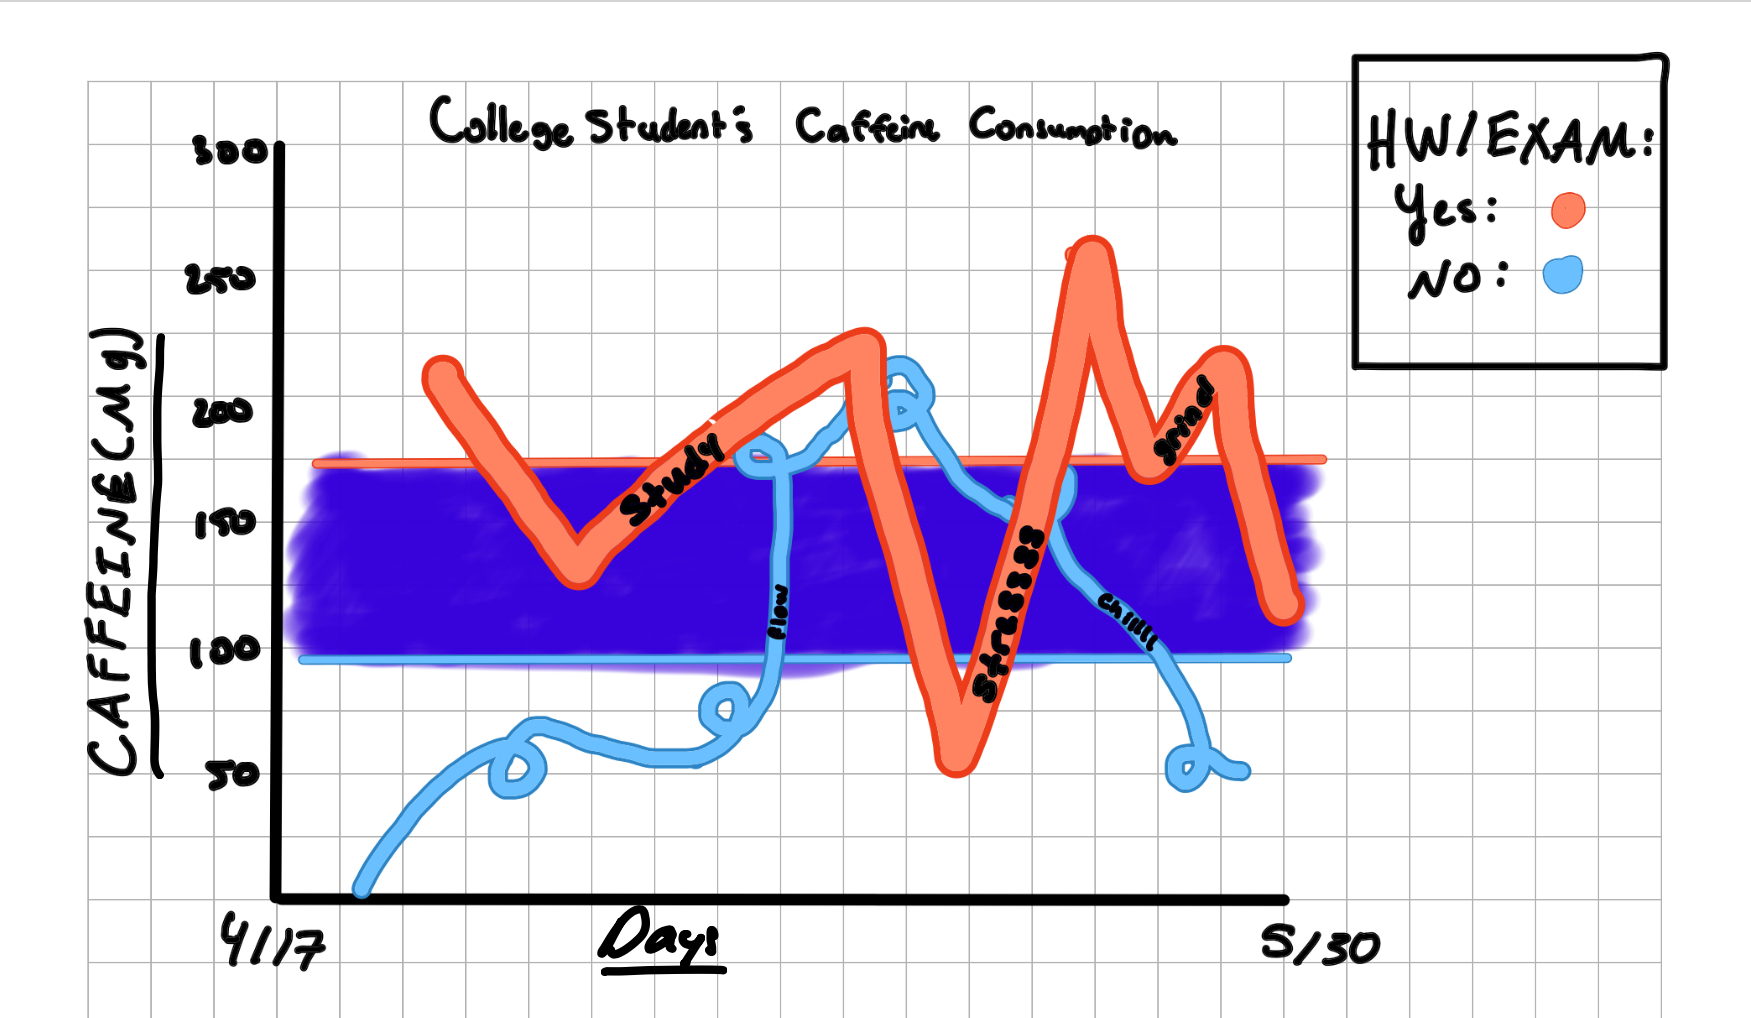 College Student's Caffeine Consumption
HW/EXAM:
Yes:
NO:
300
250
200
150
100
50
CAFFEINE(Mg)
Study
flow
Stressss
grind
chillll
4/17
Days
5/30